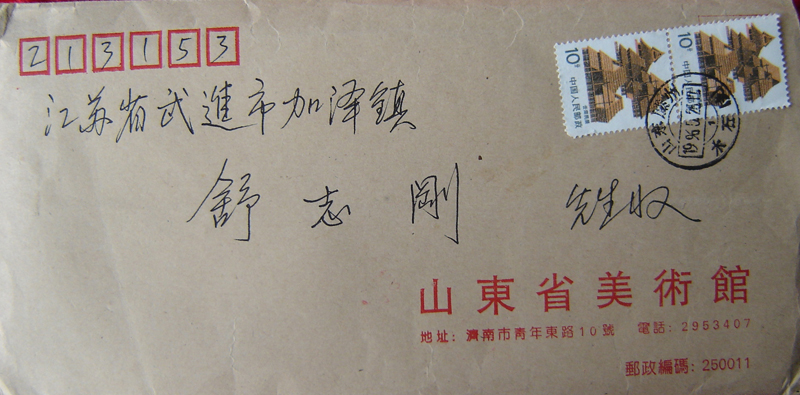 213153
江苏省武進市加泽鎮
舒志剛 先生收
10分 中国人民邮政
10分 中国
山東省美術館
地址：濟南市青年東路10號 電話：2953407
郵政編碼：250011